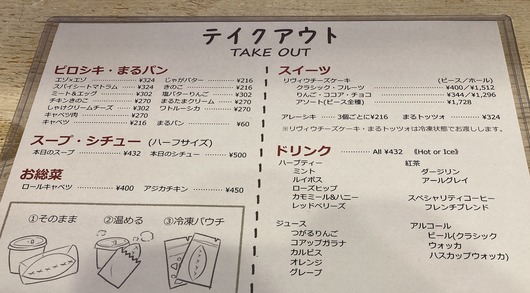 テイクアウト
TAKE OUT
ピロシキ・まるパン
エゾ×エゾ ¥324
スパイシートマトラム ¥324
ミート&エッグ ¥302
チキンきのこ ¥270
しゃけクリームチーズ ¥302
キャベツ肉 ¥270
キャベツ ¥216
じゃがバター ¥216
きのこ ¥216
塩バターりんご ¥302
まるたまクリーム ¥270
ワトルーシカ ¥216
まるパン ¥60
スープ・シチュー (ハーフサイズ)
本日のスープ ¥432 本日のシチュー ¥500
お総菜
ロールキャベツ ¥400 アジカチキン ¥450
①そのまま ②温める ③冷凍パウチ
スイーツ
リヴィウチーズケーキ (ピース/ホール)
クラシック・フルーツ ¥400/¥1,512
りんご・ココア・チョコ ¥344/¥1,296
アソート(ピース全種) ¥1,728
アレーシキ 3個ごとに¥216 まるトッツォ ¥324
※リヴィウチーズケーキ・まるトッツォは冷凍状態でお渡しします。
ドリンク All ¥432 《Hot or Ice》
ハーブティー
ミント
ルイボス
ローズヒップ
カモミール&ハニー
レッドベリーズ
紅茶
ダージリン
アールグレイ
スペシャリティコーヒー
フレンチブレンド
ジュース
つがるりんご
コアップガラナ
カルピス
オレンジ
グレープ
アルコール
ビール(クラシック
ウォッカ
ハスカップウォッカ)